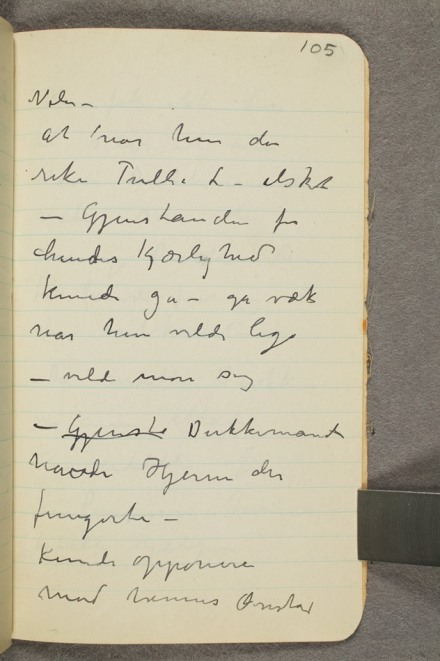 105
at når hun den
rike Trulla L – elsket
– Gjenstanden for
hendes Kjærlighed
kunde gå – gå væk
når hun vilde lege
– vilde more sig
– Gjenste Dukkemand
havde Hjerne der
fungerte –
kunde opponere
mod hennes Ønsker